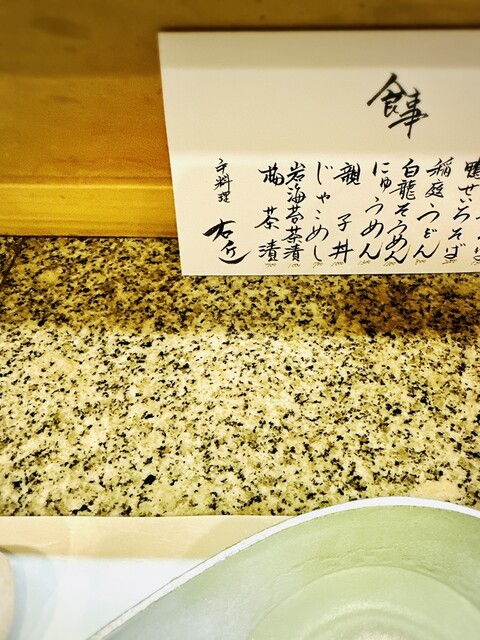 食事
鴨せいろそば
稲庭うどん
白龍そうめん
にゅうめん
親子丼
じゃこめし
岩海苔茶漬
梅茶漬
右近